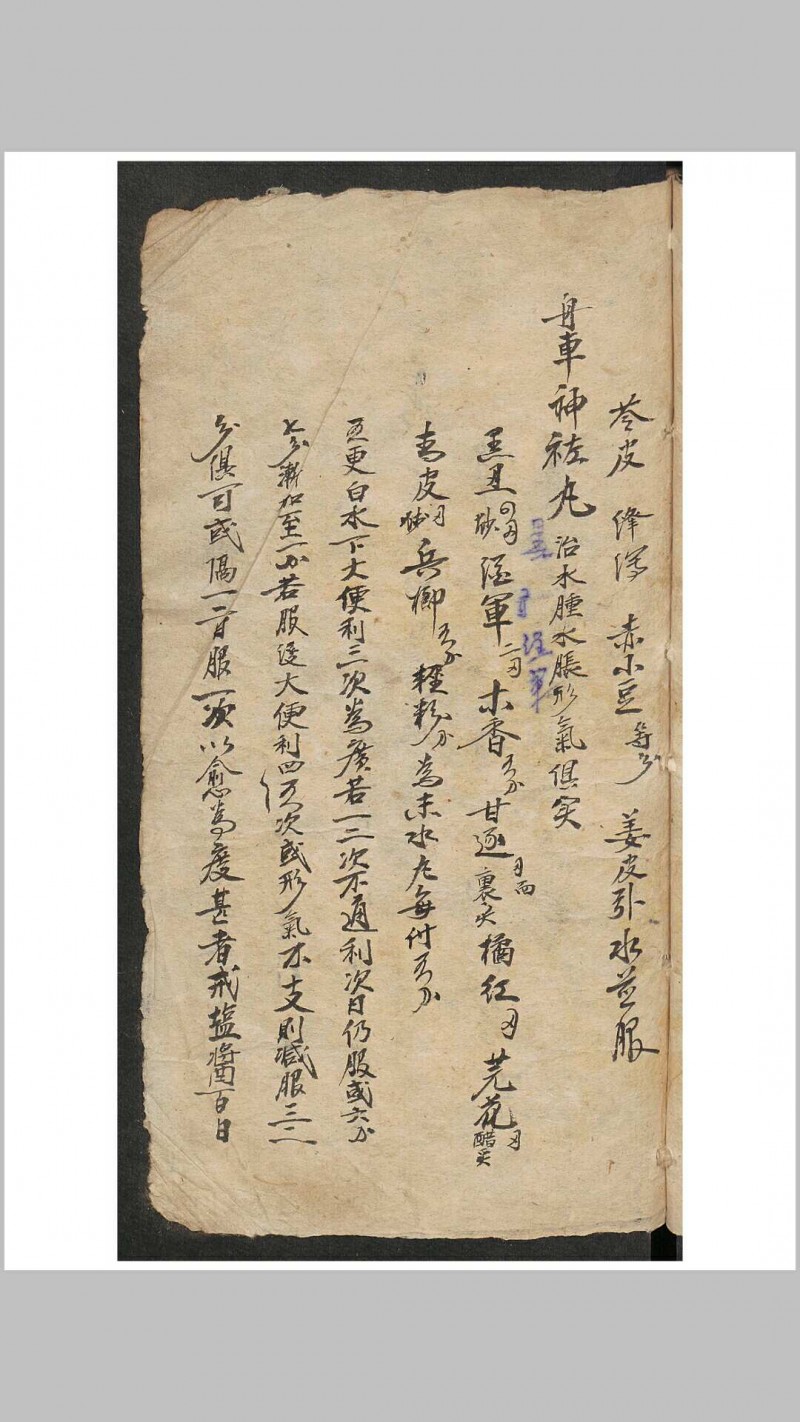 苓皮 絳澤 赤小豆 等分 姜皮引水並服
舟車神祐丸 治水腫水脹形氣俱实
黑丑 四両 炒 酒軍 二両 木香 五分 甘遂 両 面裹煨 橘紅 両 芫花 両 醋炙
青皮 両 炒 兵榔 五分 輕粉 分 為末水丸每付五分
五更白水下大便利三次為度若一二次不通利次日仍服或六分
七分漸加至一分若服後大便利四五次或形氣不支則減服三二
分俱可或隔一二日服一次以愈為度甚者戒塩醬百日
黑丑 酒軍